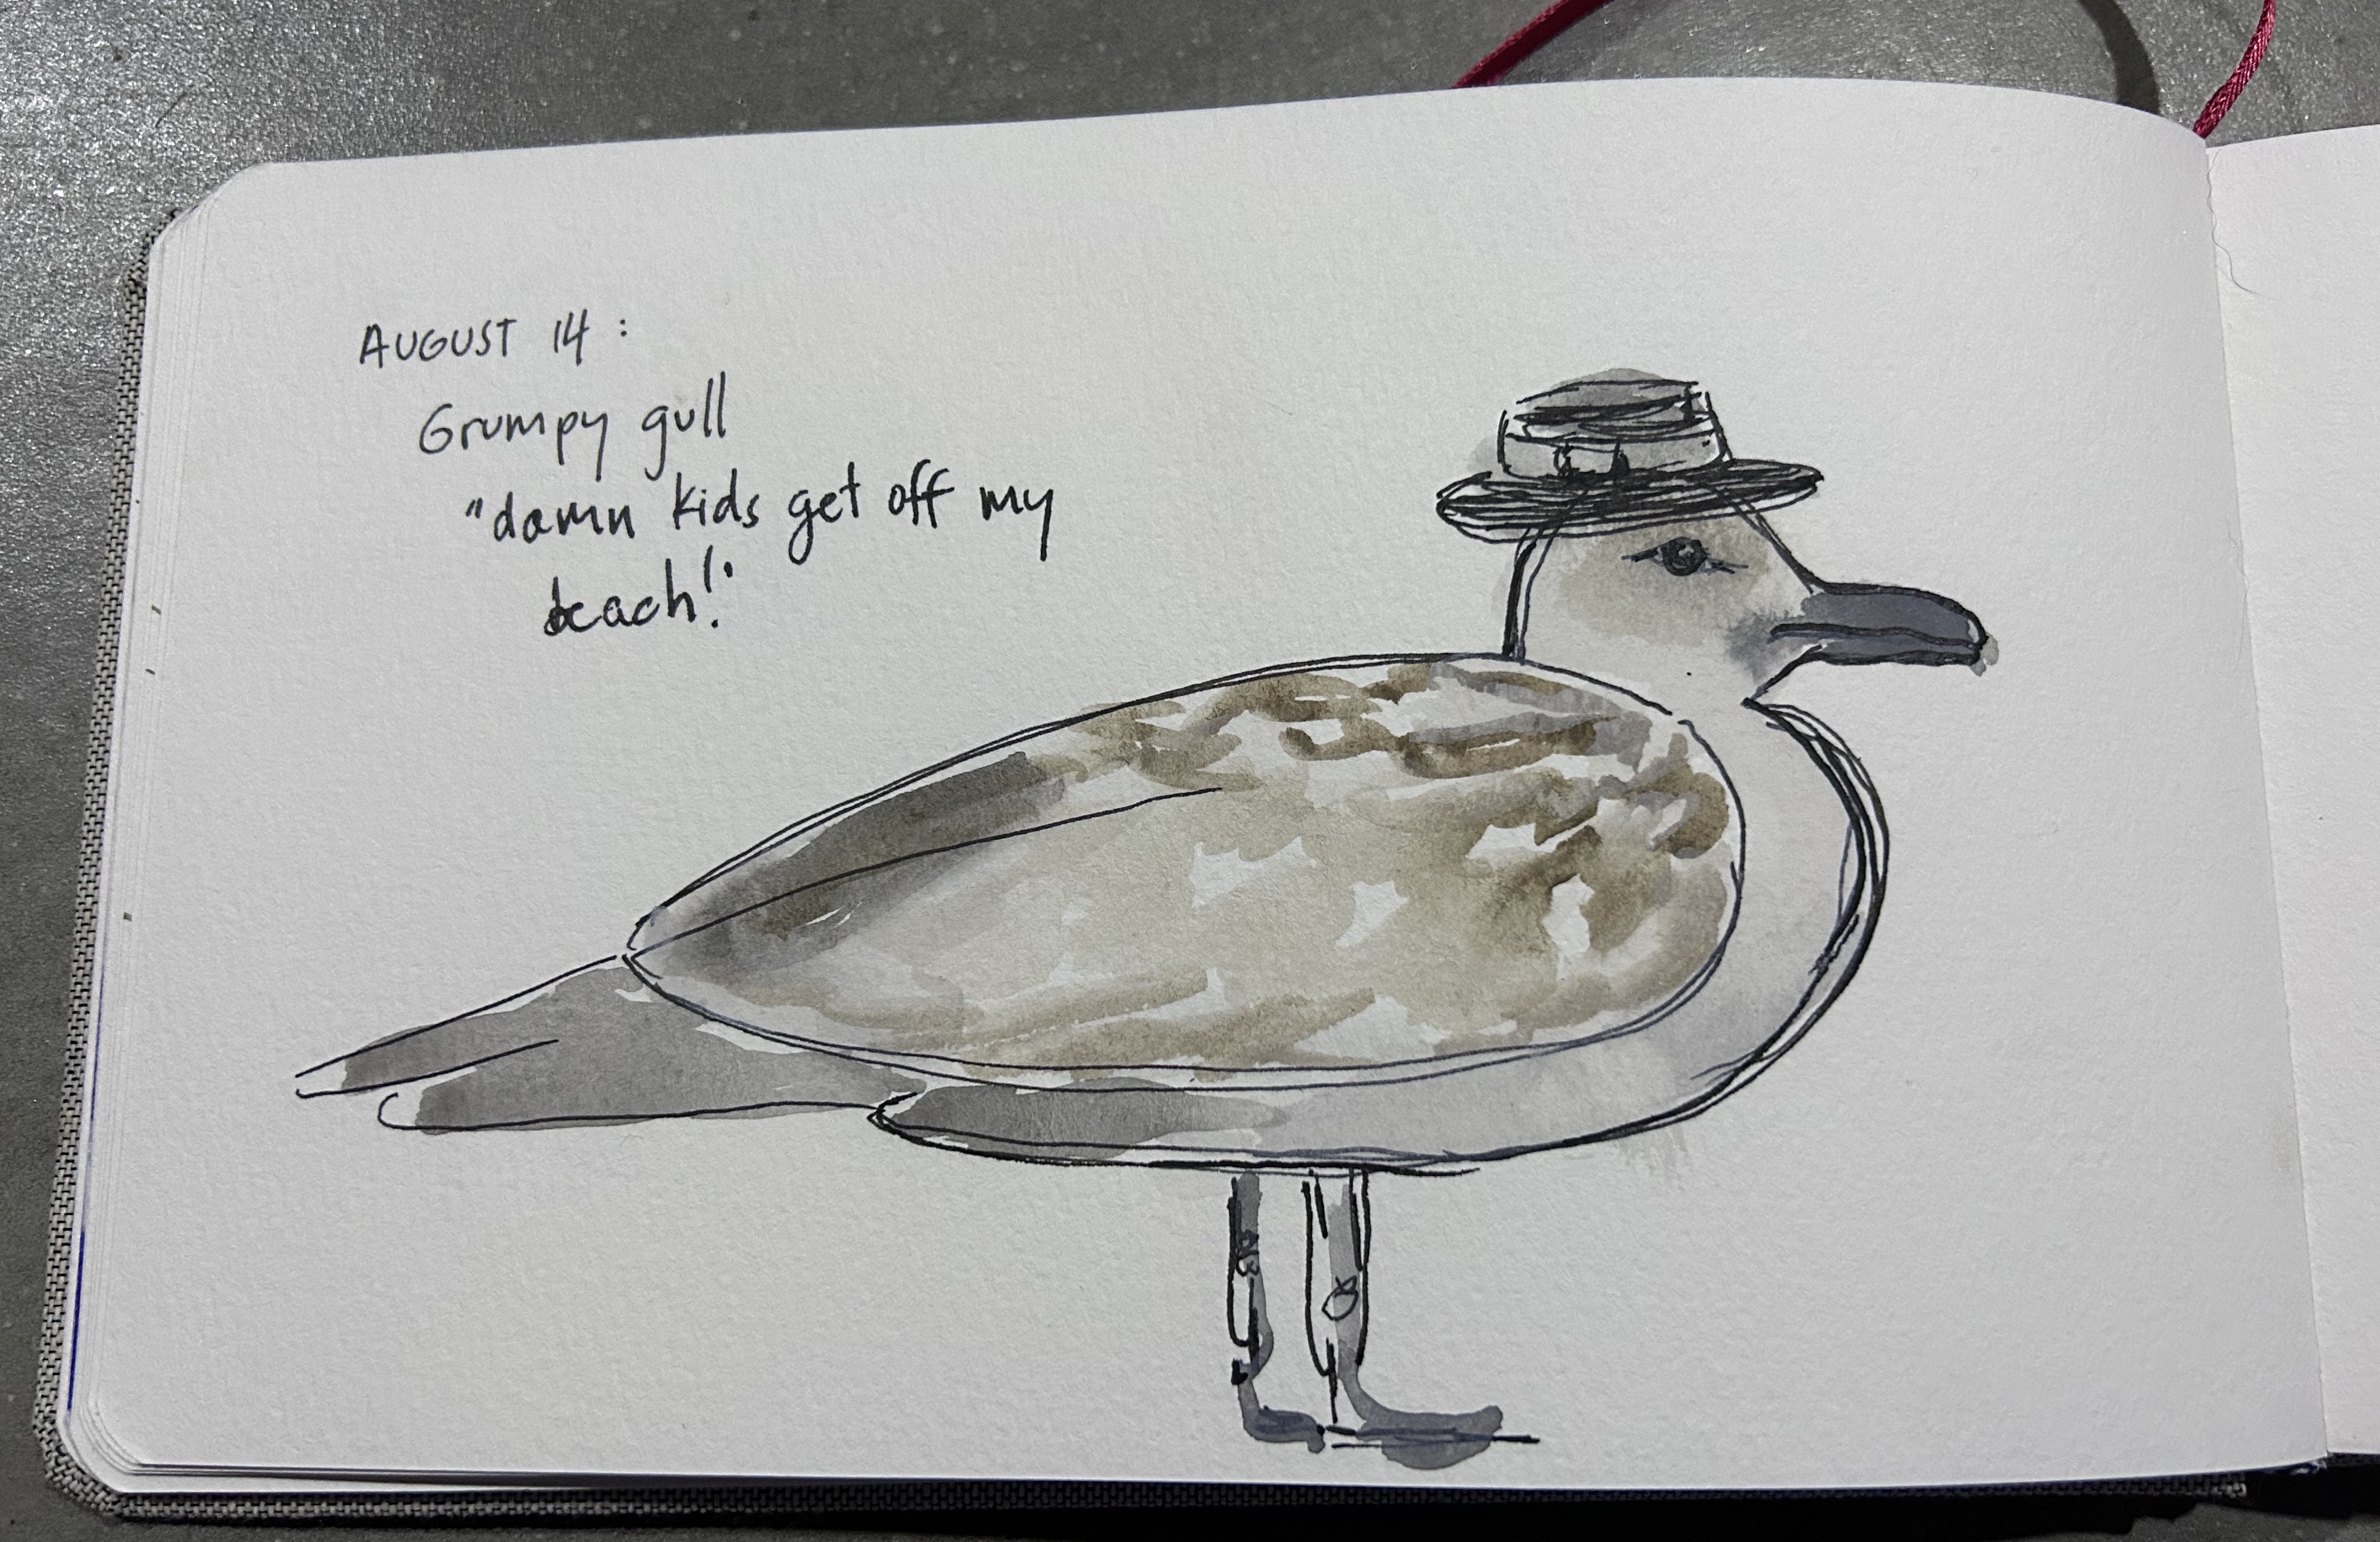 AUGUST 14:
Grumpy gull
"damn kids get off my
beach!"